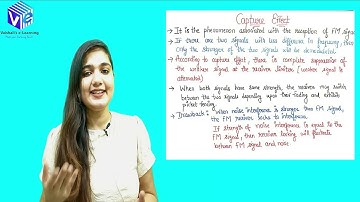 Vaishali's e-Learning
Capture Effect
→ It is the phenomenon associated with the reception of FM signal
→ If there are two signals with less difference in frequency, then
only the stronger of the two signals will be demodulated.
→ According to capture effect, there is complete supression of
the weaker signal at the receiver limiter (weaker signal is
attenuated)
→ When both signals have same strength, the receiver may switch
between the two signals depending upon their fading and exhibits
picket fencing.
→ Drawback: When noise interference is stronger than FM signal,
the FM receiver locks to interference.
If strength of noise interference is equal to the
FM signal, then receiver locking will fluctuate
between FM signal and noise.